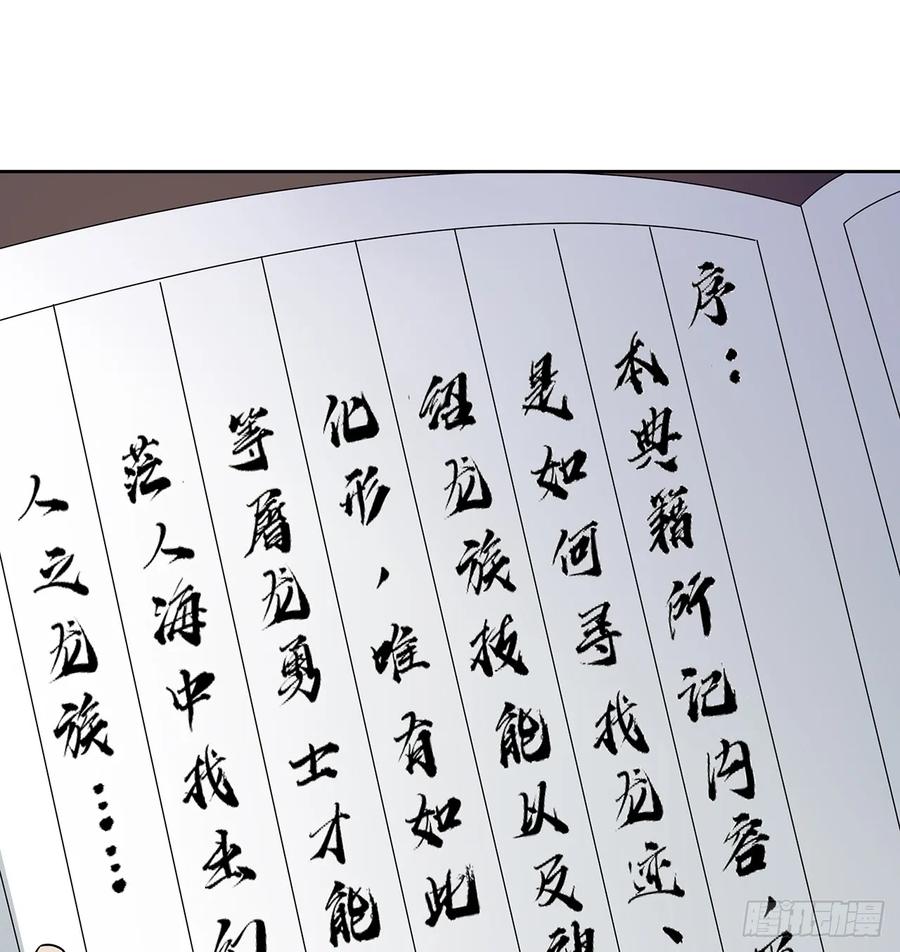 序：
本典籍所记内容，
是如何寻找龙迹、
组龙族技能以及
化形，唯有如此
等屠龙勇士才能
茫人海中找出们
人之龙族……
腾讯动漫